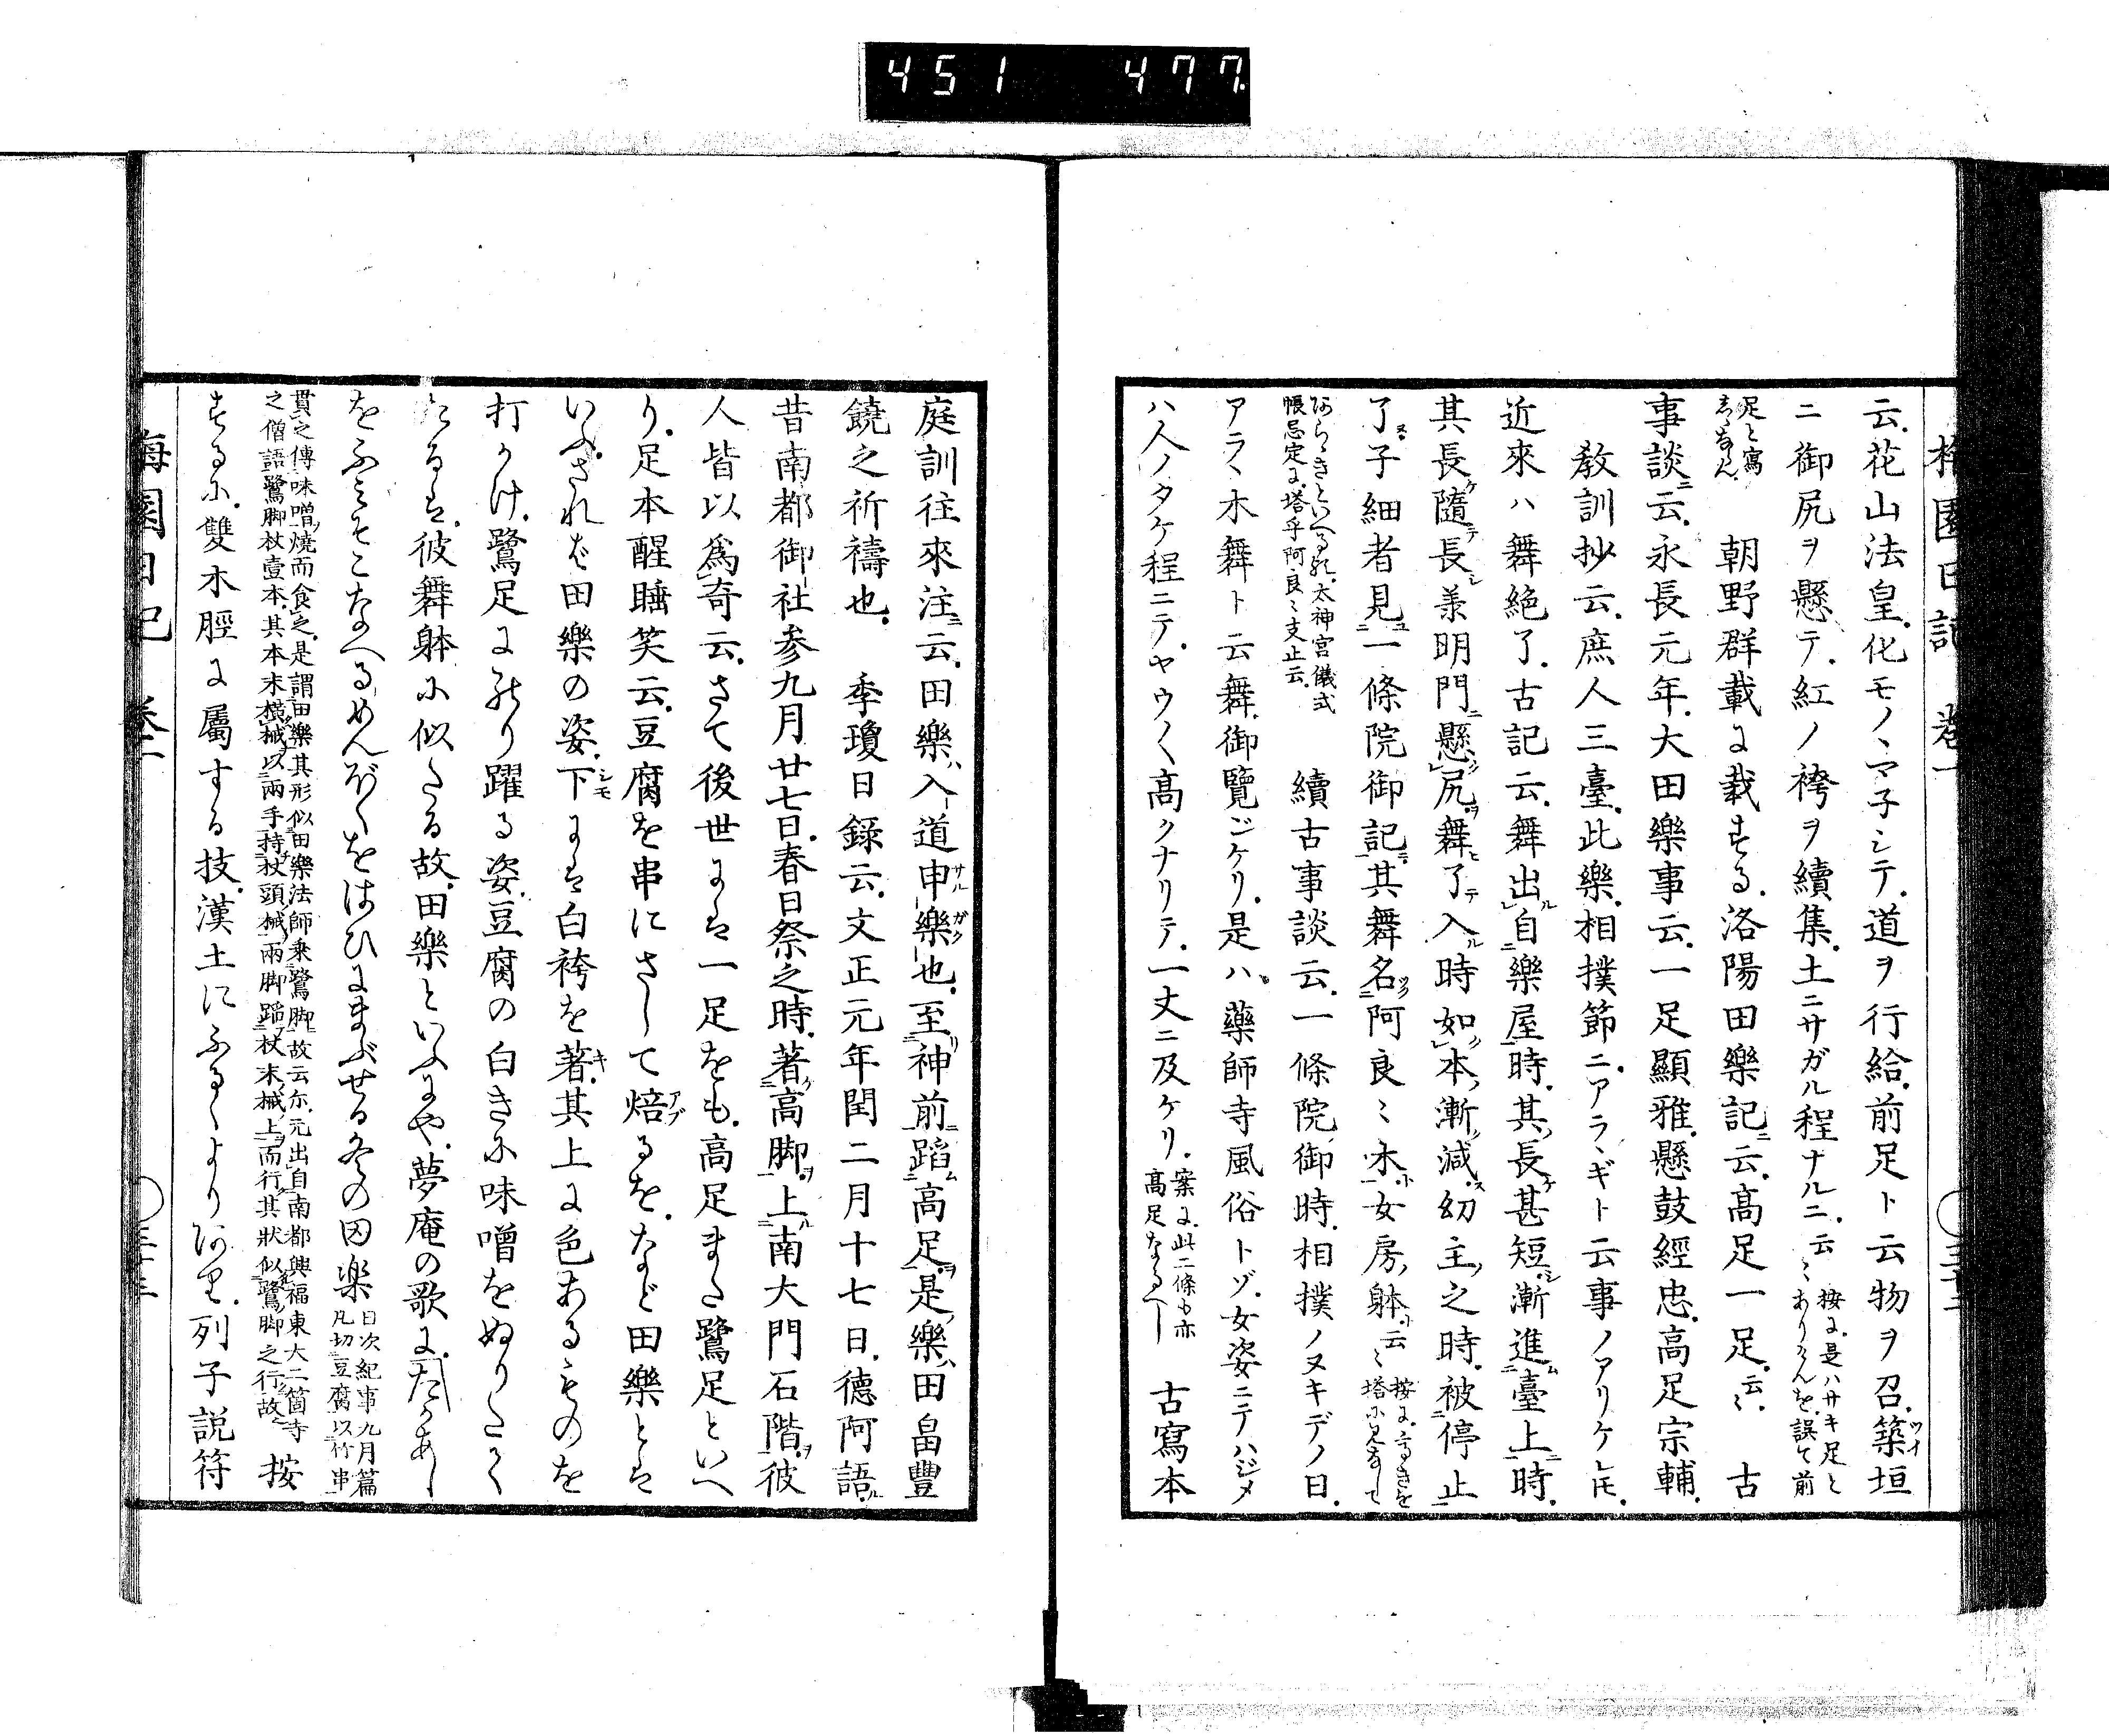 451 477
梅園日記 卷一
云。花山法皇。化モノヽマ子シテ。道ヲ行給。前足ト云物ヲ召。築垣
ニ御尻ヲ懸テ。紅ノ袴ヲ續集。土ニサガル程ナルニ。云々 按に。是ハサキ足と
ありけんを。誤て前
足と寫
しゝならん。 朝野群載に載する。洛陽田樂記ニ云。高足一足。云々。 古
事談ニ云。永長元年。大田樂事云。一足顯雅。懸鼓經忠。高足宗輔。
教訓抄云。庶人三臺。此樂。相撲節ニ。アラヽギト云事ノアリケレ𪜈。
近來ハ舞絶了。古記云。舞出自樂屋時。其長甚短。漸進臺上時。
其長隨テ長シ。羕明門ニ懸尻舞了テ入ル時如本。漸減。幼主之時。被停止
了。子細者見一條院御記。其舞名阿良々木。女房躰云々 按に。高きを
塔に見なして
あらゝきといへる歟。太神宮儀式
帳忌定に。塔乎阿良々支止云。 續古事談云。一條院御時。相撲ノヌキデノ日。
アラヽ木舞ト云舞。御覽ジケリ。是ハ。藥師寺風俗トゾ。女姿ニテハジメ
ハ人ノタケ程ニテ。ヤウ〳〵高クナリテ。一丈ニ及ケリ。 案に。此二條も亦
高足なるべし 古寫本
庭訓往來注ニ云。田樂ハ入道申樂也。至神前蹈高足。是樂ハ田畠豐
饒之祈禱也。 季瓊日錄云。文正元年閏二月十七日。德阿語
昔南都御社參九月廿七日。春日祭之時。著高脚。上南大門石階。彼
人皆以爲奇云。さて後世には一足をも。高足また鷺足といへ
り。足本醒睡笑云。豆腐を串にさして焙るを。など田樂とは
いふ。されば田樂の姿。下には白袴を著。其上に色あるものを
打かけ。鷺足にのり躍る姿。豆腐の白きに味噌をぬりたて
たるは。彼舞躰に似たる故。田樂といふにや。夢庵の歌に。たかあし
をふみそこなへるめんぼくをはひにまぶせる冬の田楽 日次紀事九月篇
凡切豆腐以竹串
貫之傳味噌燒而食之。是謂田樂其形似田樂法師乘鷺脚故云尓。元出自南都興福東大二箇寺
之僧語鷺脚杖壹本。其本末横械以兩手持杖頭械兩脚蹈杖末械上而行。其状似鷺脚之行故。 按
するに。雙木脛に屬する技。漢土にふるくよりあり。列子説符
梅園日記 卷一